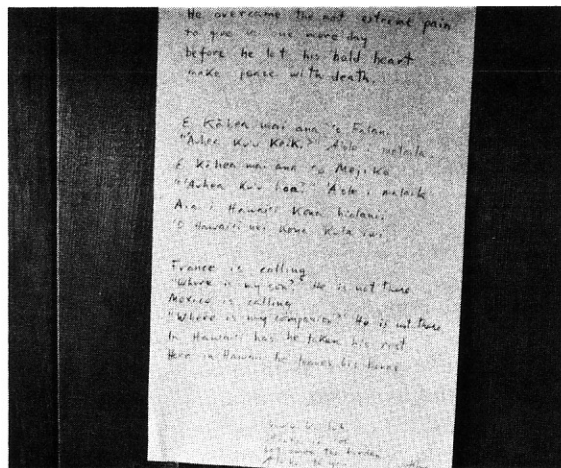 He overcame the not extreme pain
to give us one more day
before he let his bold heart
make peace with death.
E Kāhea mai ana 'o Falani
"Auhea Kuu Keiki?" A'ole i malaila
E Kāhea mai ana 'o Mejiko
"Auhea Kuu hoa?" A'ole i malaila
Aia i Hawai'i Kona
'O Hawai'i nei Kona Kula iwi
France is calling
"Where is my son?" He is not there
Mexico is calling
"Where is my companion?" He is not there
In Hawai'i has he taken his rest
Here in Hawaii he leaves his bones
the burden